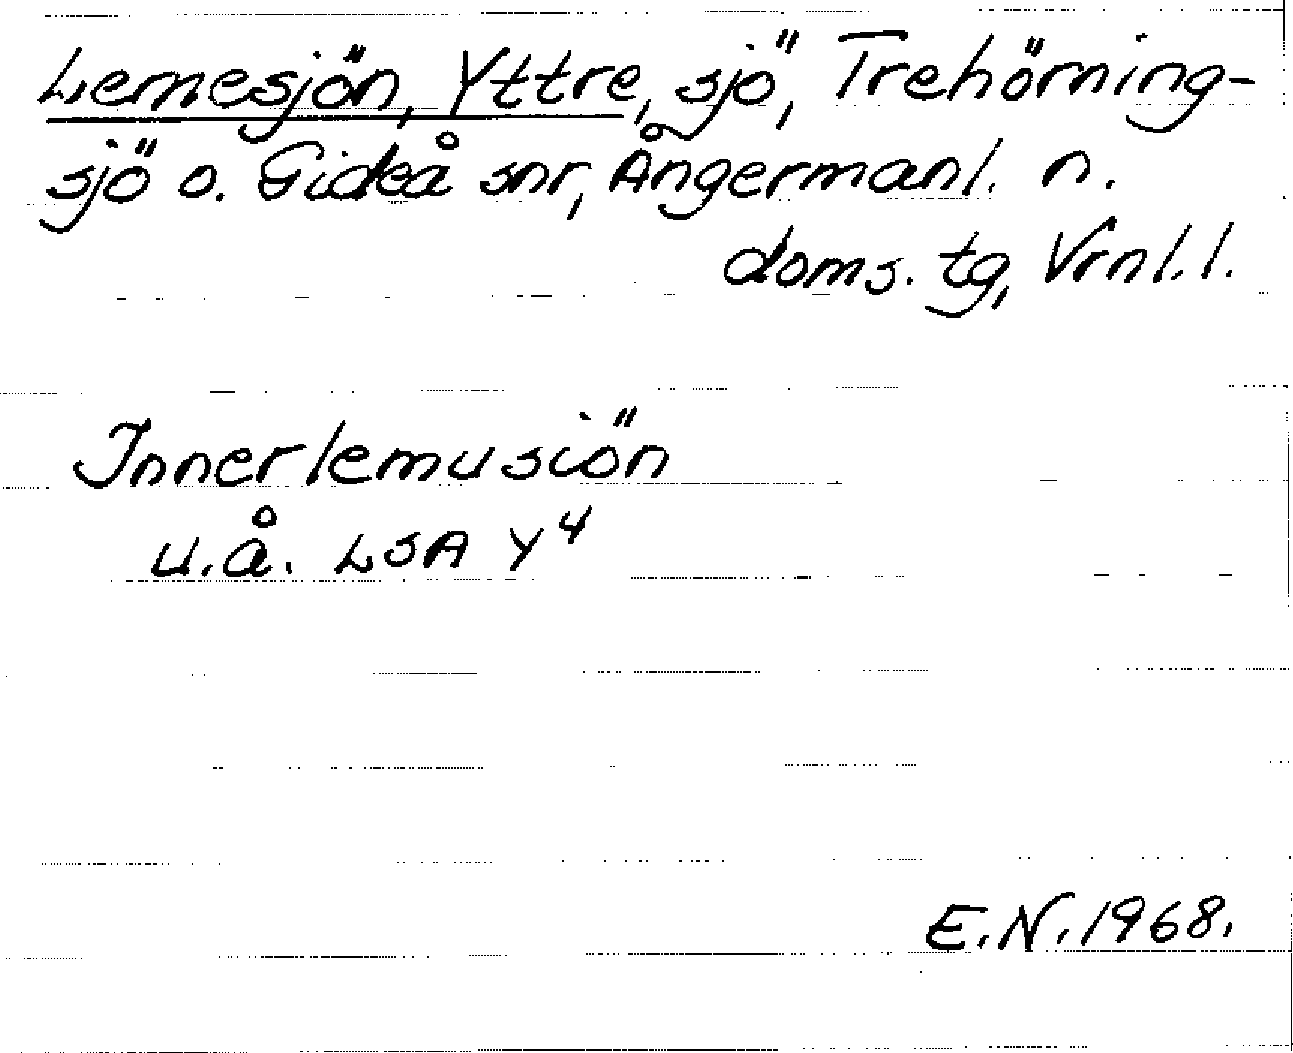 Lemesjön, Yttre, sjö, Trehörning-
sjö o. Gideå snr, Ångermanl. n.
doms. tg, Vrnl. l.
Innerlemusiön
u.å. LSA Y4
E.N. 1968.